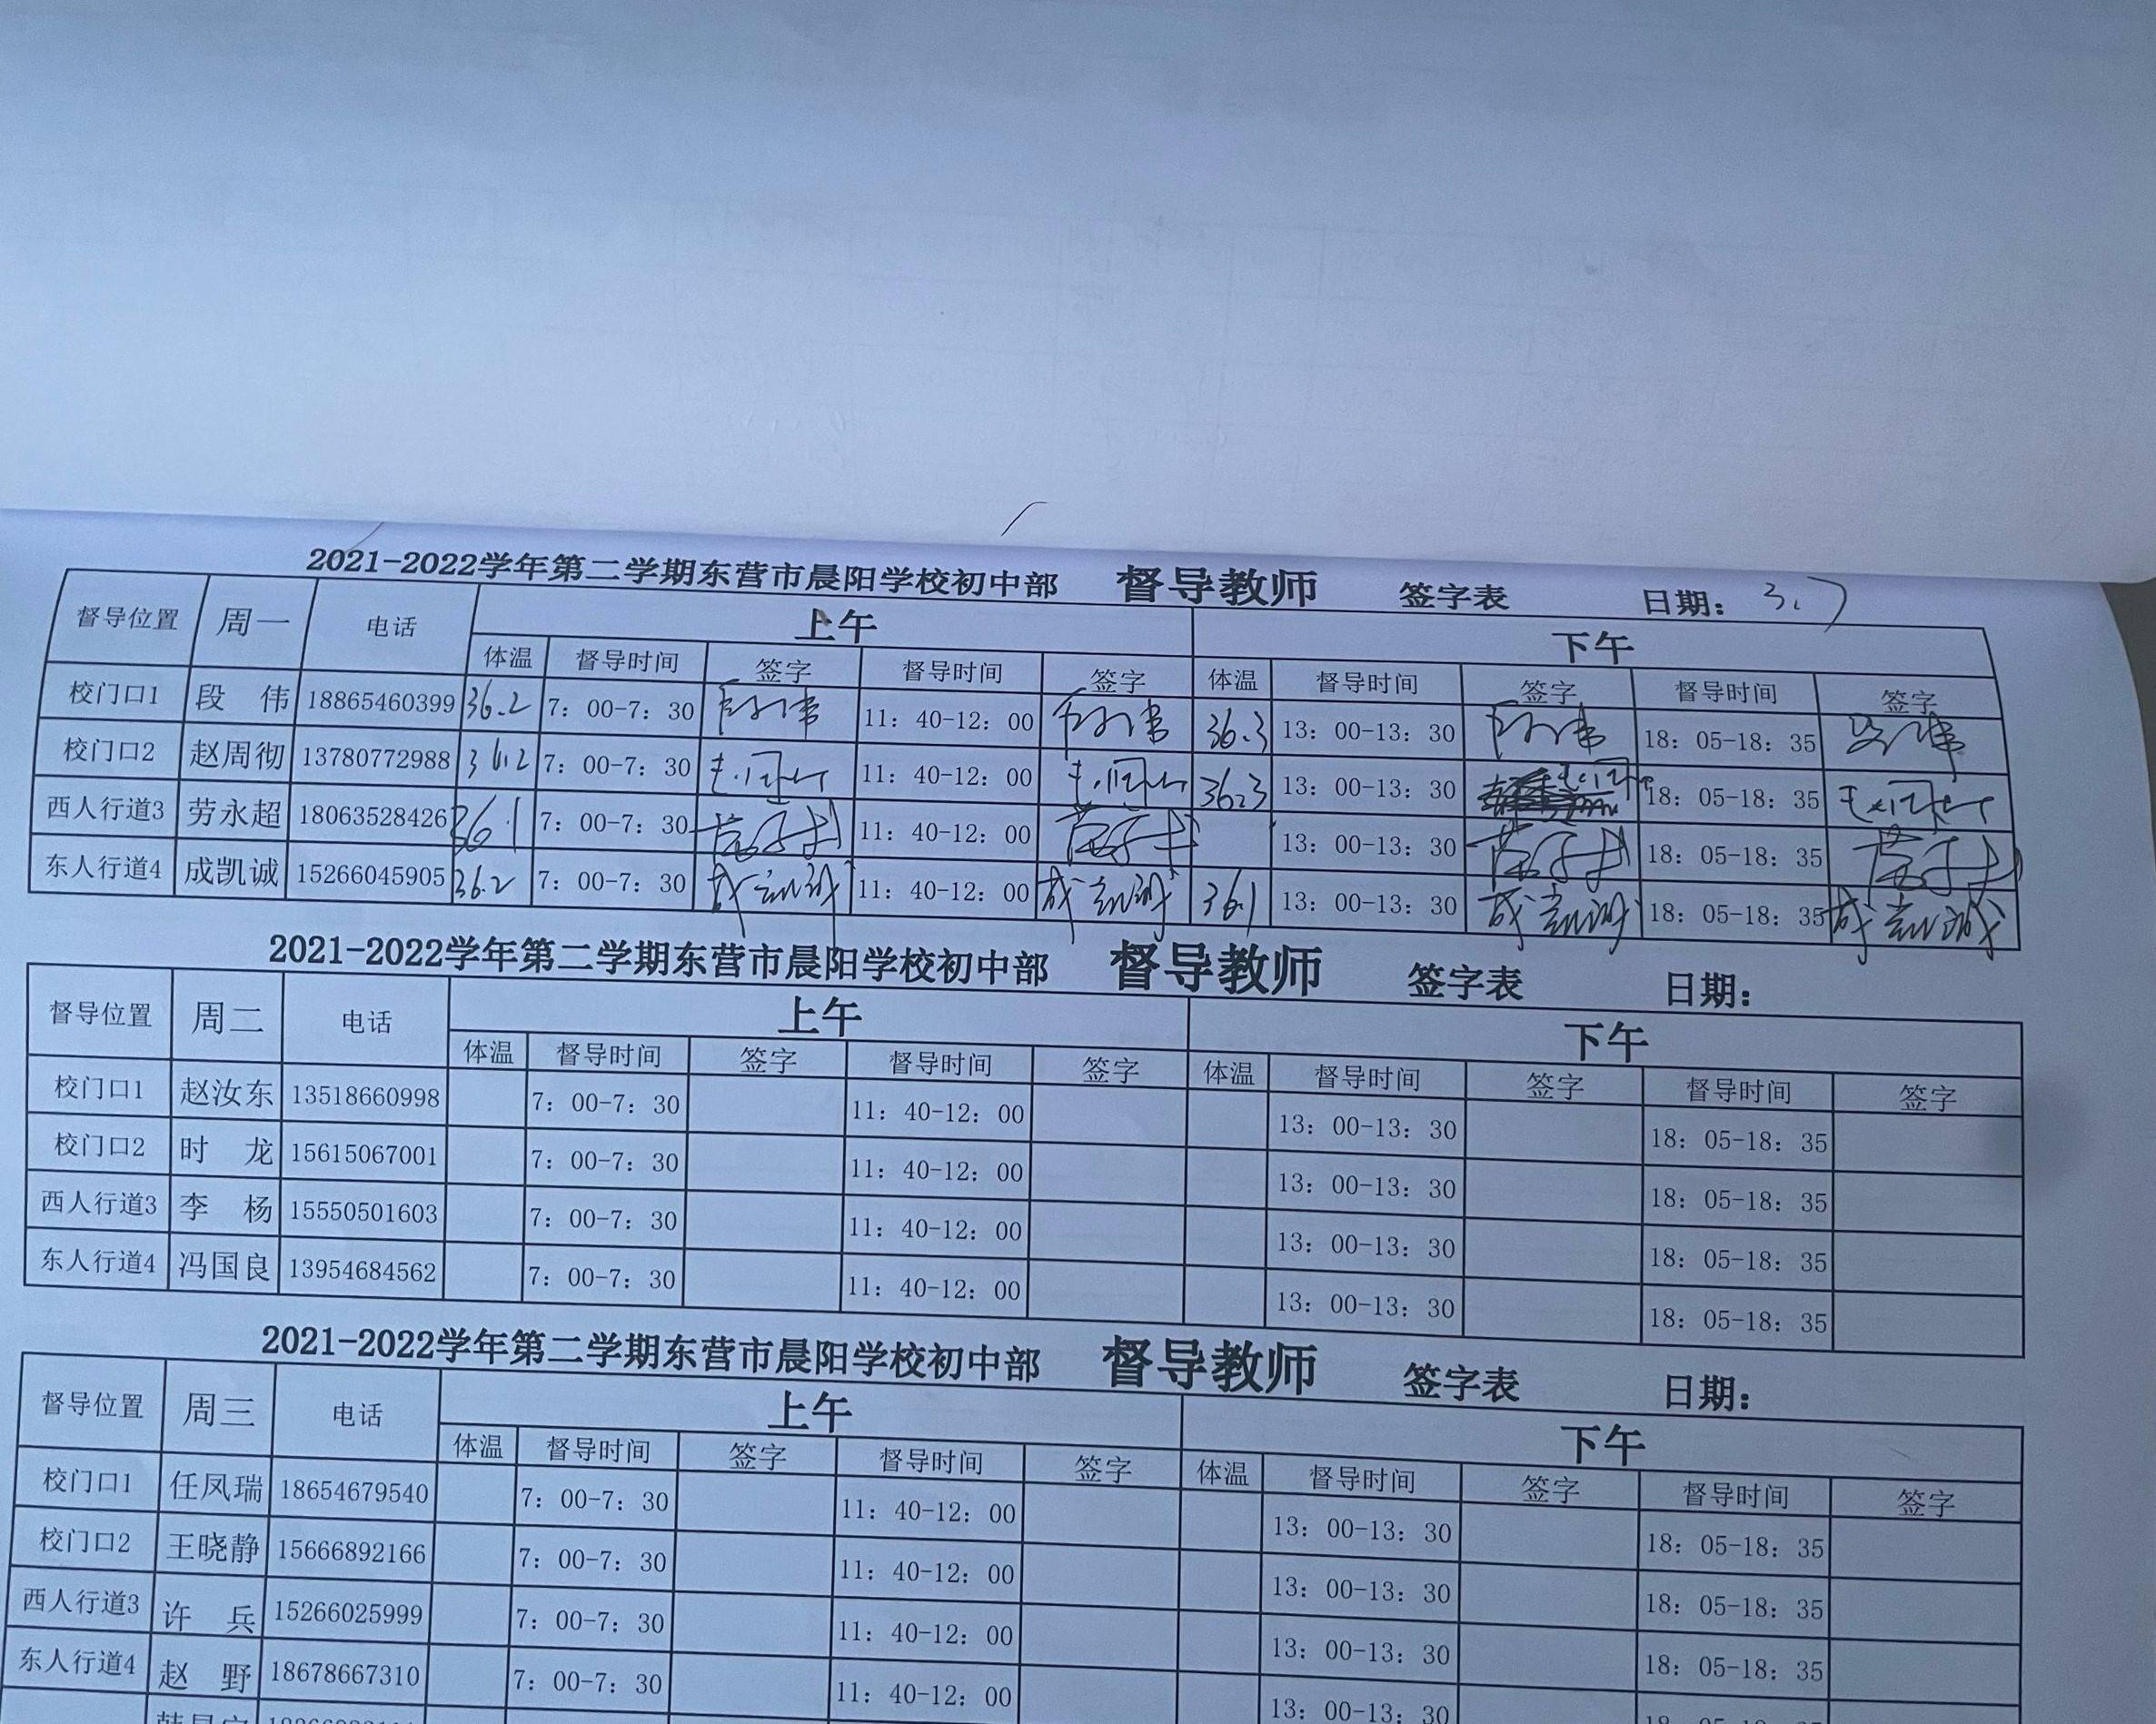 2021-2022学年第二学期东营市晨阳学校初中部 督导教师 签字表 日期: 3.7
督导位置 周一 电话 上午 下午
体温 督导时间 签字 督导时间 签字 体温 督导时间 签字 督导时间 签字
校门口1 段 伟 18865460399 36.2 7: 00-7: 30 11: 40-12: 00 36.3 13: 00-13: 30 18: 05-18: 35
校门口2 赵周彻 13780772988 36.2 7: 00-7: 30 11: 40-12: 00 36.3 13: 00-13: 30 18: 05-18: 35
西人行道3 劳永超 18063528426 36.1 7: 00-7: 30 11: 40-12: 00 13: 00-13: 30 18: 05-18: 35
东人行道4 成凯诚 15266045905 36.2 7: 00-7: 30 成凯诚 11: 40-12: 00 成凯诚 36.1 13: 00-13: 30 成凯诚 18: 05-18: 35 成凯诚
2021-2022学年第二学期东营市晨阳学校初中部 督导教师 签字表 日期:
督导位置 周二 电话 上午 下午
体温 督导时间 签字 督导时间 签字 体温 督导时间 签字 督导时间 签字
校门口1 赵汝东 13518660998 7: 00-7: 30 11: 40-12: 00 13: 00-13: 30 18: 05-18: 35
校门口2 时 龙 15615067001 7: 00-7: 30 11: 40-12: 00 13: 00-13: 30 18: 05-18: 35
西人行道3 李 杨 15550501603 7: 00-7: 30 11: 40-12: 00 13: 00-13: 30 18: 05-18: 35
东人行道4 冯国良 13954684562 7: 00-7: 30 11: 40-12: 00 13: 00-13: 30 18: 05-18: 35
2021-2022学年第二学期东营市晨阳学校初中部 督导教师 签字表 日期:
督导位置 周三 电话 上午 下午
体温 督导时间 签字 督导时间 签字 体温 督导时间 签字 督导时间 签字
校门口1 任凤瑞 18654679540 7: 00-7: 30 11: 40-12: 00 13: 00-13: 30 18: 05-18: 35
校门口2 王晓静 15666892166 7: 00-7: 30 11: 40-12: 00 13: 00-13: 30 18: 05-18: 35
西人行道3 许 兵 15266025999 7: 00-7: 30 11: 40-12: 00 13: 00-13: 30 18: 05-18: 35
东人行道4 赵 野 18678667310 7: 00-7: 30 11: 40-12: 00 13: 00-13: 30 18: 05-18: 35